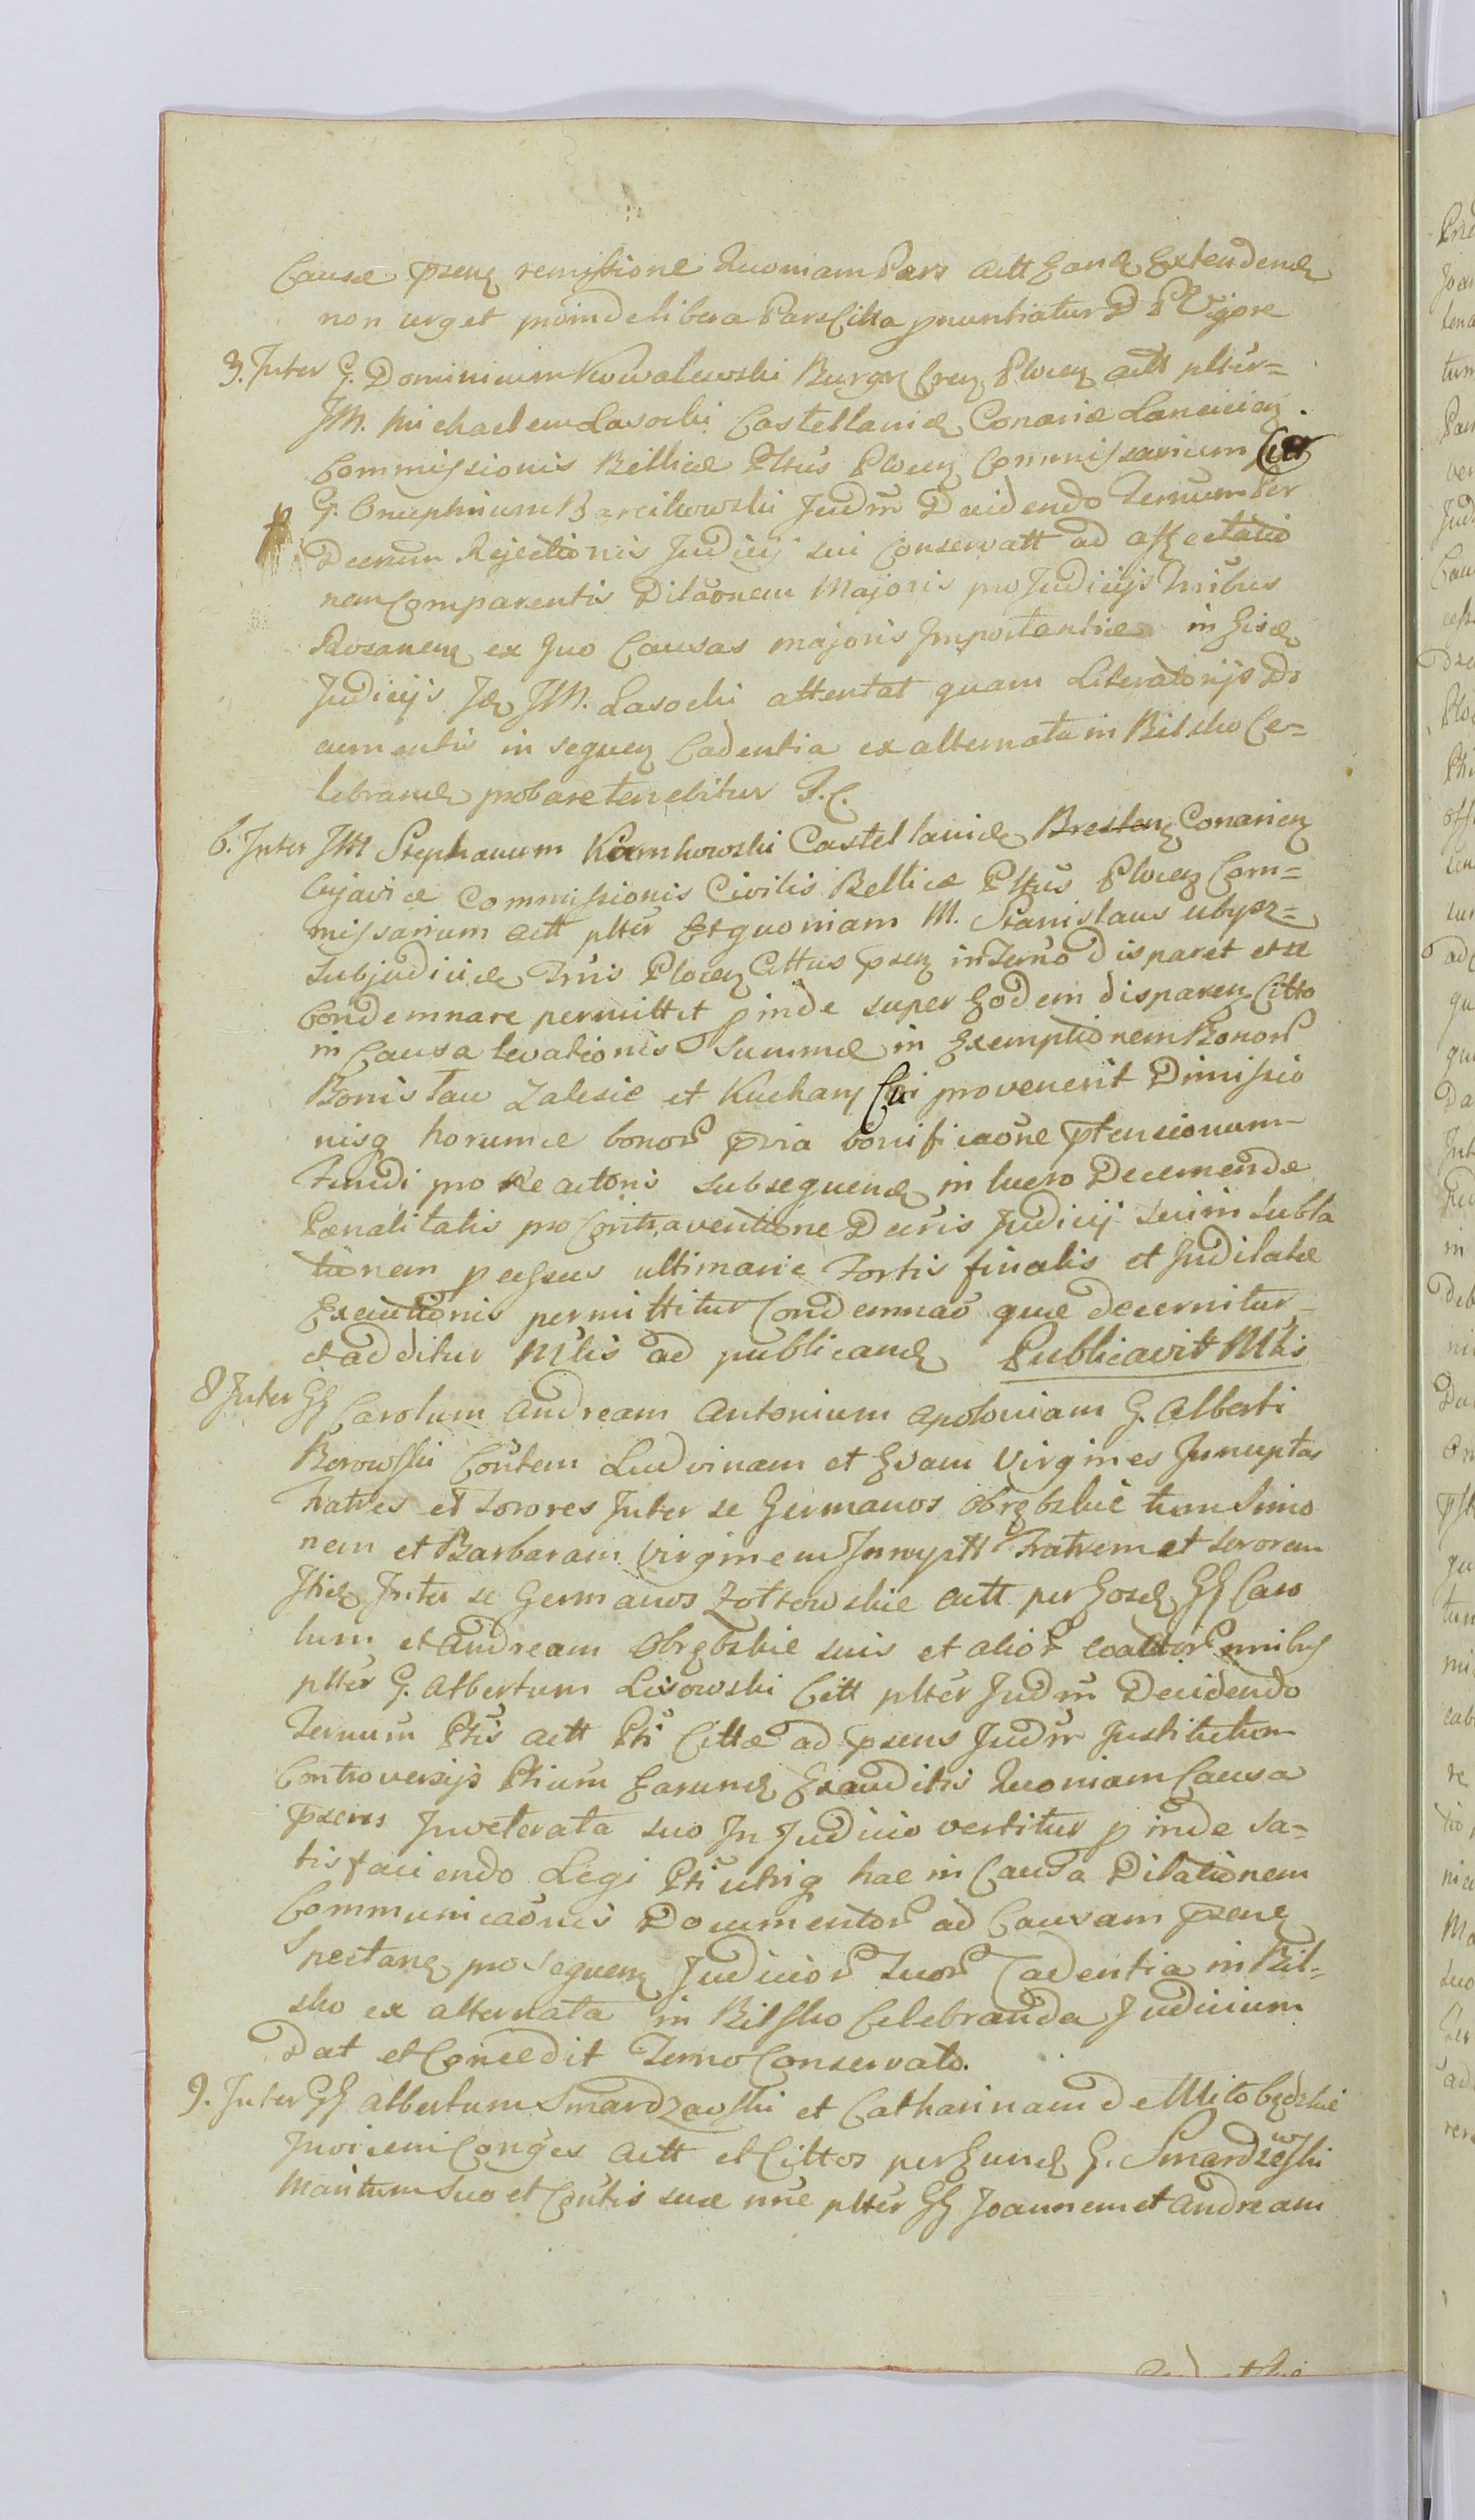 Causæ pzenz remissione Quoniam Pars actt Eand Extendend
non urget proinde libera Pars Citta pnuntiatur D P Vigore
3. Inter G. Dominicum Kowalewski Burgr Crenz Plocenz actt plter=
JM. Michaelem Lasocki Castellanid Conariæ Lancicienz.
Commissionis Bellicæ Pltus Plocenz Commissarium Citt
G. Onuphrium Barcikowski Judm Decidendo Ternum Per
Decrum Rejectionis Judicij sui Conservatt ad affectatio
nem Comparentis Dilaonem Majoris pro Judicijs Tribus
Rozanenz ex quo Causas majoris Importantiæ in Eisd
Judicijs Id JM. Lasocki attentat quam Literatorijs Do
cumentis in sequenz Cadentia ex alternata in Bilsko Ce=
lebrand probare tenebitur T. C.
6. Inter JM Stephanum Karnkowski Castellanid Breslenz Conarienz
Cujaviæ Commissionis Civilis Bellicæ Pltus Plocenz Com=
missarium actt plter Etquoniam M. Stanislaus ubysz=
Subjudicid Trris Plocenz Cittus pzenz in Terno disparet et se
Condemnare permittit pinde super Eodem disparenz Citto
in Causa levationis Summæ in Exemptionem Bonor
Bonis Tau Zalesie et Kuchary Cui provenerit Dimissio
nisq horumce bonor pvia bonificaone ptensionum=
Fundi pro Reactoris subsequend in lucro Decernendæ
Pœnalitatis pro Contraventione Decris Judicij sui in subla
tionem pcessus ultimarie Fortis finalis et Indilatæ
Executionis permittitur Condemnao quæ decernitur
et additur Mlis ad publicand Publicavit Mlis
8 Inter GG Carolum Andream Antonium Apoloniam G. Alberti
Borowski Contem Ludvinam et Evam Virgines Innuptas
Fratres et Sorores Inter se Germanos Obrębskie tum Simo
nem et Barbaram Virginem Innuptt Fratrem et Sororem
Itid Inter se Germanos Zołtowskie actt per Eosd GG Caro
lum et Andream Obrębskie suis et alior coactor nnibus
plter G. Albertum Lisowski Citt plter Judm Decidendo
Ternum Ptis actt Pti Cittæ ad pzens Judm Institutum
Controversijs Ptium Earund Exauditis Quoniam Causa
pzens Inveterata suo In Judicio vertitur pinde sa=
tisfaciendo Legi Pti utriq hac in Causa Dilationem
Communicaonis Documentor ad Causam pzend
Spectand pro sequenz Judicior Suor Cadentia in Bil=
sko ex alternata in Bilsko Celebranda Judicium
Dat et Concedit Terno Conservato.
9. Inter GG Albertum Smardzewski et Catharinam de Miłobędzkie
Invicem Conges actt et Cittos per Eund G. Smardzewski
Maritum Suo et Contis suæ nne plter GG Joannem et Andream